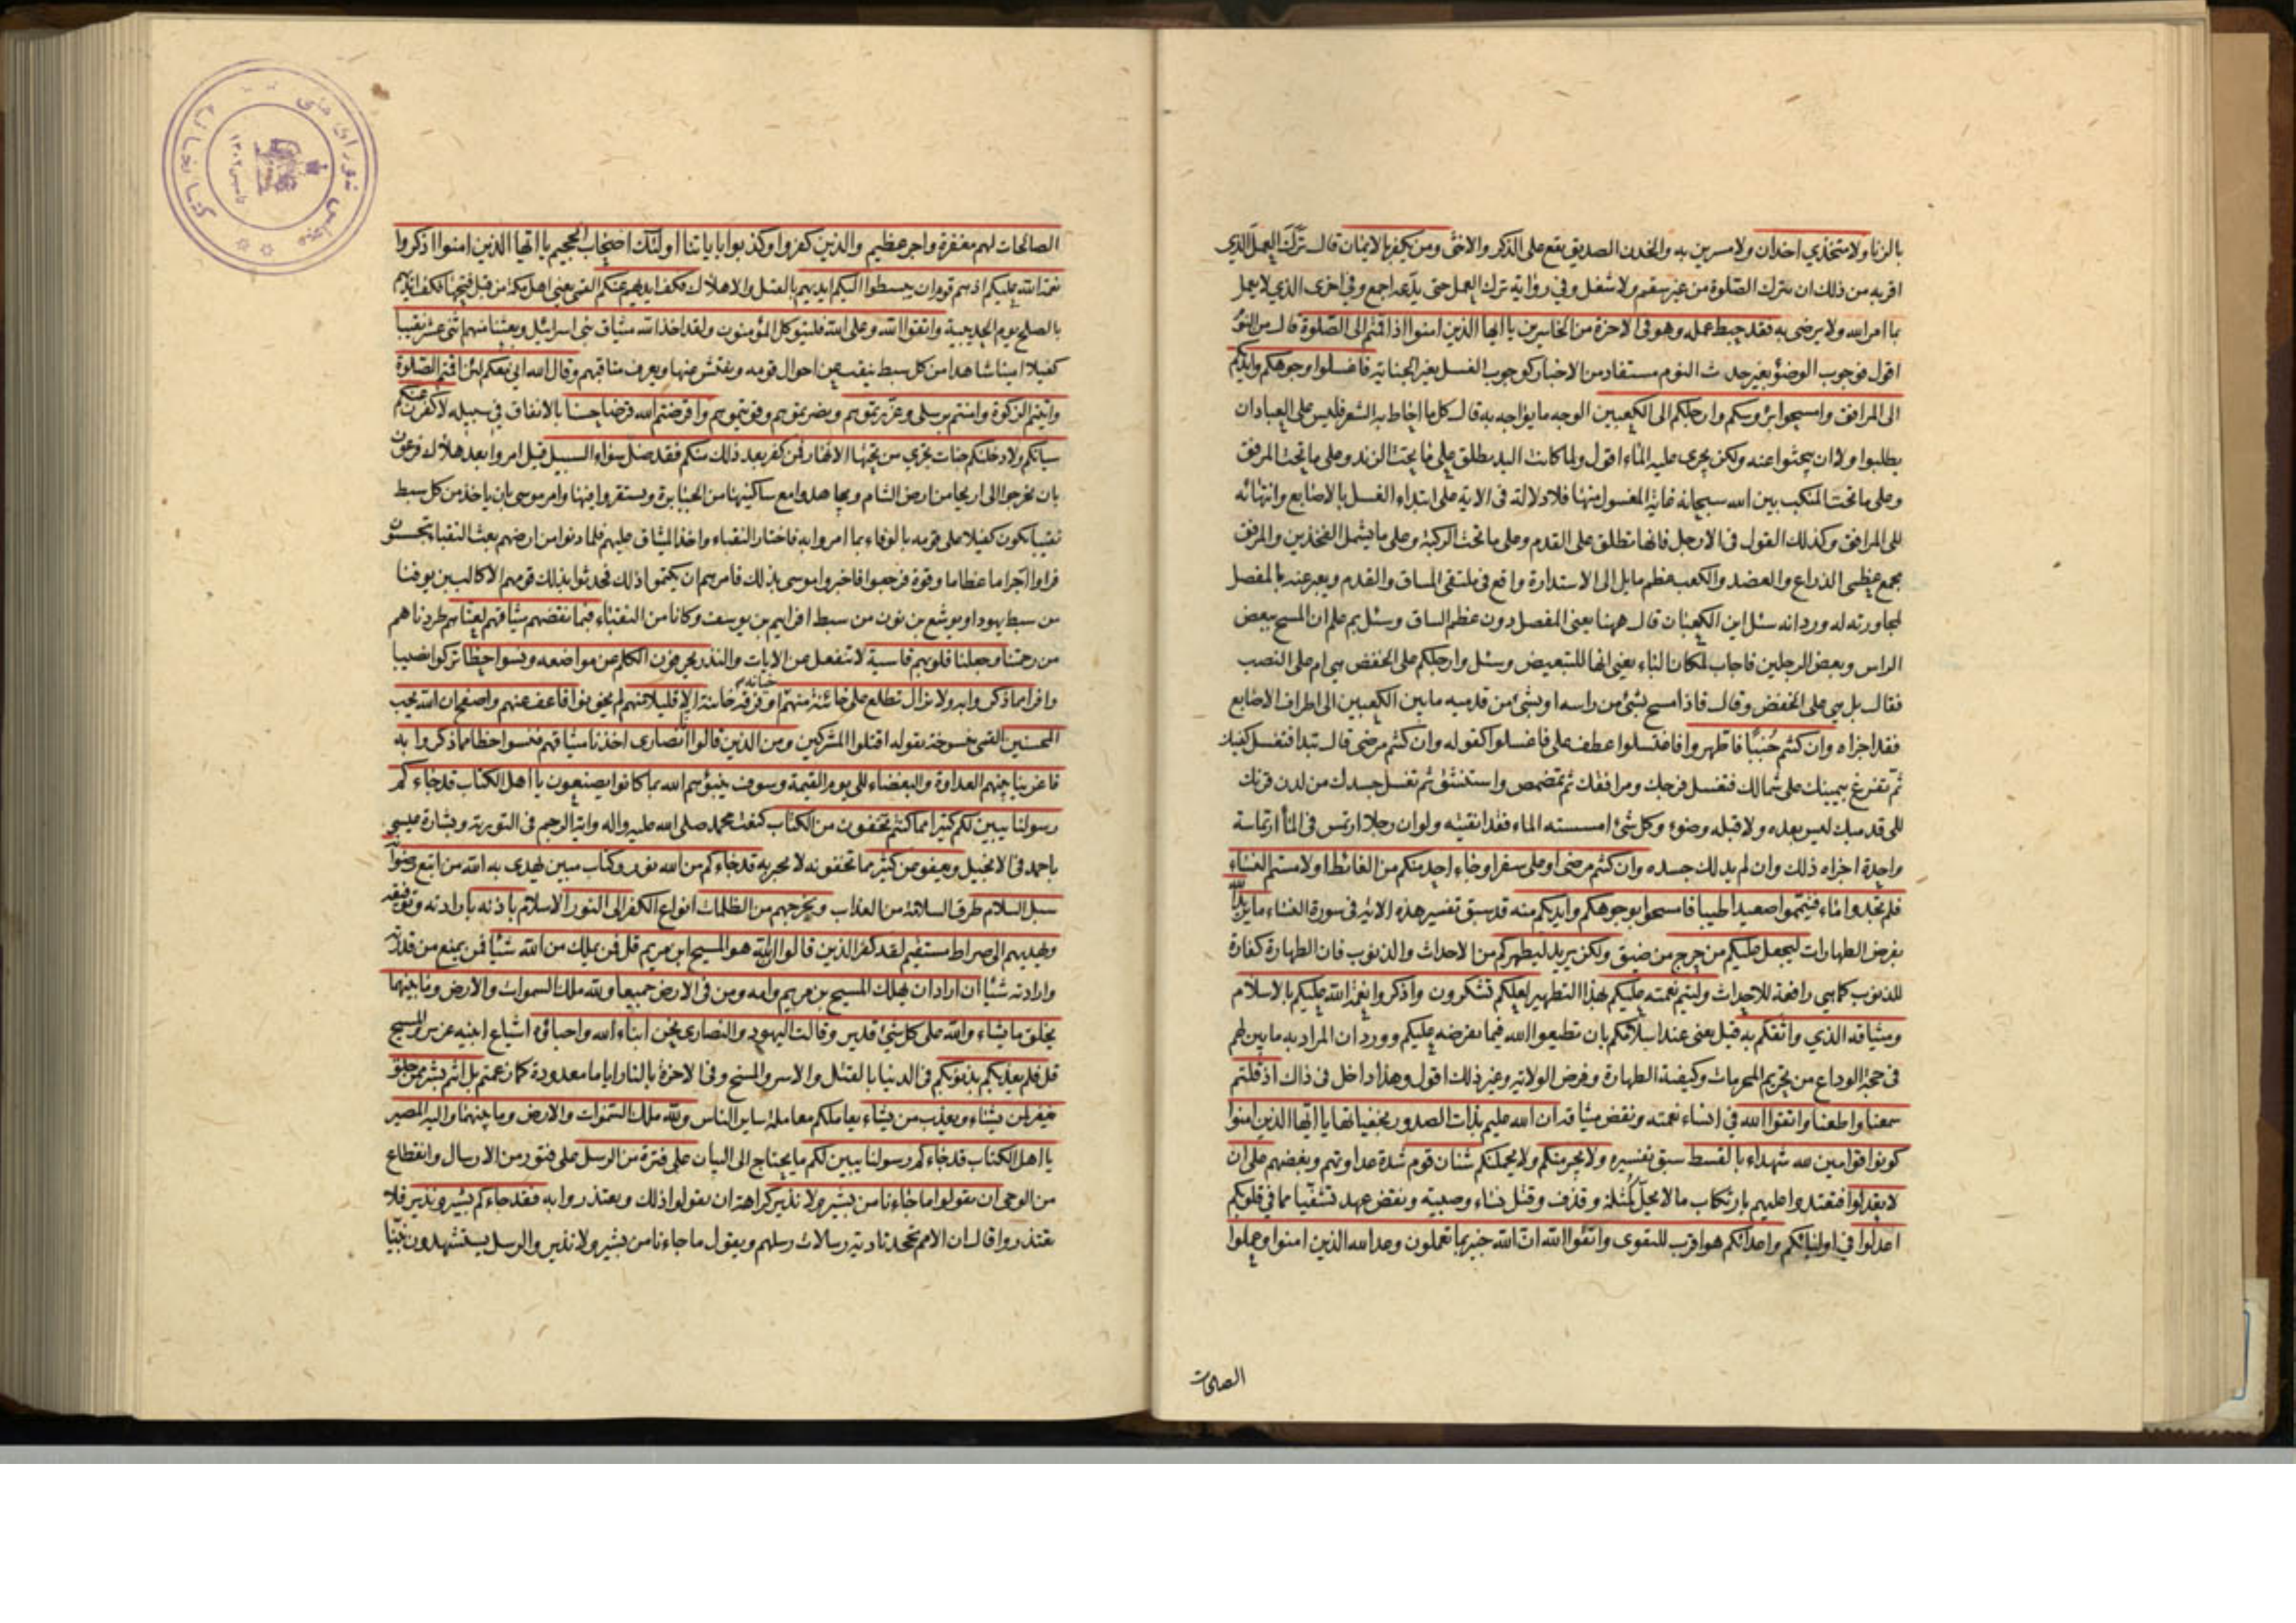 بالزنا ولا متخذي اخدان ولا مسرين به والخدن الصديق يقع على الذكر والانثى ومن يكفر بالايمان قال ترك العمل الذي
اقر به من ذلك ان يترك الصلوة من غير سقم ولا شغل وفي رواية ترك العمل حتى يدعه اجمع وفي اخرى الذي لا يعمل
بما امر الله ولا يرضى به فقد حبط عمله وهو في الاخرة من الخاسرين يا ايها الذين امنوا اذا قمتم الى الصلوة قال من النوم
اقول فوجوب الوضوء بغير حدث النوم مستفاد من الاخبار كوجوب الغسل بغير الجنابة فاغسلوا وجوهكم وايديكم
الى المرافق وامسحوا برؤسكم وارجلكم الى الكعبين الوجه ما يواجه به قال كل ما احاط به الشعر فليس على العباد ان
يطلبوا ولا ان يبحثوا عنه ولكن يجرى عليه الماء اقول ولما كانت اليد يطلق على ما تحت الزند وعلى ما تحت المرفق
وعلى ما تحت المنكب بين الله سبحانه غاية المغسول منها فلا دلالة في الاية على ابتداء الغسل بالاصابع وانتهائه
الى المرافق وكذلك القول في الارجل فانها تطلق على القدم وعلى ما تحت الركبة وعلى ما يشمل الفخذين والمرفق
مجمع عظمى الذراع والعضد والكعب عظم مايل الى الاستدارة واقع في ملتقى الساق والقدم ويعبر عنه بالمفصل
لمجاورته له ورد انه سئل اين الكعبان قال ههنا يعني المفصل دون عظم الساق وسئل بم علم ان المسح ببعض
الراس وبعض الرجلين فاجاب لمكان الباء يعني انها للتبعيض وسئل وارجلكم على الخفض هي ام على النصب
فقال بل هي على الخفض وقال فاذا مسح بشئ من راسه او بشئ من قدميه ما بين الكعبين الى اطراف الاصابع
فقد اجزاه وان كنتم جنبا فاطهروا فاغتسلوا عطف على فاغسلوا كقوله وان كنتم مرضى قال تبدا فتغسل كفيك
ثم تفرغ بيمينك على شمالك فتغسل فرجك ومرافقك ثم تمضمض واستنشق ثم تغسل جسدك من لدن قرنك
الى قدميك ليس بعده ولا قبله وضوء وكل شئ امسسته الماء فقد انقيته ولو ان رجلا ارتمس في الماء ارتماسة
واحدة اجزاه ذلك وان لم يدلك جسده وان كنتم مرضى او على سفر او جاء احد منكم من الغائط او لامستم النساء
فلم تجدوا ماء فتيمموا صعيدا طيبا فامسحوا بوجوهكم وايديكم منه قد سبق تفسير هذه الاية في سورة النساء ما يريد الله
بفرض الطهارات ليجعل عليكم من حرج من ضيق ولكن يريد ليطهركم من الاحداث والذنوب فان الطهارة كفارة
للذنوب كما هي رافعة للاحداث وليتم نعمته عليكم بهذا التطهير لعلكم تشكرون واذكروا نعمة الله عليكم بالاسلام
وميثاقه الذي واثقكم به قيل يعني عند اسلامكم بان تطيعوا الله فيما يفرضه عليكم وورد ان المراد به ما بين لهم
في حجة الوداع من تحريم المحرمات وكيفية الطهارة وفرض الولاية وغير ذلك اقول وهذا داخل في ذاك اذ قلتم
سمعنا واطعنا واتقوا الله في انساء نعمته ونقض ميثاقه ان الله عليم بذات الصدور بخفياتها يا ايها الذين امنوا
كونوا قوامين لله شهداء بالقسط سبق تفسيره ولا يجرمنكم ولا يحملنكم شنان قوم شدة عداوتهم وبغضهم على ان
لا تعدلوا فتعتدوا عليهم بارتكاب ما لا يحل كمثلة وقذف وقتل نساء وصبية ونقض عهد تشفيا مما في قلوبكم
اعدلوا في اوليائكم واعدائكم هو اقرب للتقوى واتقوا الله ان الله خبير بما تعملون وعد الله الذين امنوا وعملوا
الصالحات
الصالحات لهم مغفرة واجر عظيم والذين كفروا وكذبوا باياتنا اولئك اصحاب الجحيم يا ايها الذين امنوا اذكروا
نعمة الله عليكم اذ هم قوم ان يبسطوا اليكم ايديهم بالقتل والاهلاك فكف ايديهم عنكم القمى يعني اهل مكة من قبل فتحها فكف ايديهم
بالصلح يوم الحديبية واتقوا الله وعلى الله فليتوكل المؤمنون ولقد اخذ الله ميثاق بني اسرائيل وبعثنا منهم اثنى عشر نقيبا
كفيلا امينا شاهدا من كل سبط ينقب عن احوال قومه ويفتش عنها ويعرف مناقبهم وقال الله اني معكم لئن اقمتم الصلوة
واتيتم الزكوة وامنتم برسلي وعزرتموهم ونصرتموهم وقويتموهم واقرضتم الله قرضا حسنا بالانفاق في سبيله لاكفرن عنكم
سياتكم ولادخلنكم جنات تجري من تحتها الانهار فمن كفر بعد ذلك منكم فقد ضل سواء السبيل قيل امروا بعد هلاك فرعون
بان يخرجوا الى اريحا من ارض الشام ويجاهدوا مع ساكنيها من الجبابرة ويستقروا فيها وامر موسى بان ياخذ من كل سبط
نقيبا يكون كفيلا على قومه بالوفاء بما امروا به فاختار النقباء واخذ الميثاق عليهم فلما دنوا من ارضهم بعث النقباء يتجسسون
فراوا اجراما عظاما وقوة فرجعوا فاخبروا موسى بذلك فامرهم ان يكتموا ذلك فحدثوا بذلك قومهم الا كالب بن يوفنا
من سبط يهودا ويوشع بن نون من سبط افرايم بن يوسف وكانا من النقباء فبما نقضهم ميثاقهم لعناهم طردناهم
من رحمتنا وجعلنا قلوبهم قاسية لا تنفعل من الايات والنذر يحرفون الكلم عن مواضعه ونسوا حظا تركوا نصيبا
وافرا مما ذكروا به ولا تزال تطلع على خائنة منهم خيانة او فرقة خائنة الا قليلا منهم لم يخونوا فاعف عنهم واصفح ان الله يحب
المحسنين القمى منسوخة بقوله اقتلوا المشركين ومن الذين قالوا انا نصارى اخذنا ميثاقهم فنسوا حظا مما ذكروا به
فاغرينا بينهم العداوة والبغضاء الى يوم القيمة وسوف ينبؤهم الله بما كانوا يصنعون يا اهل الكتاب قد جاءكم
رسولنا يبين لكم كثيرا مما كنتم تخفون من الكتاب كنعت محمد صلى الله عليه واله واية الرجم في التورية وبشارة عيسى
باحمد في الانجيل ويعفو عن كثير مما تخفونه لا يخبر به قد جاءكم من الله نور وكتاب مبين يهدى به الله من اتبع رضوانه
سبل السلام طرق السلامة من العذاب ويخرجهم من الظلمات انواع الكفر الى النور الاسلام باذنه بارادته وتوفيقه
ويهديهم الى صراط مستقيم لقد كفر الذين قالوا ان الله هو المسيح ابن مريم قل فمن يملك من الله شيئا فمن يمنع من قدرته
وارادته شيئا ان اراد ان يهلك المسيح بن مريم وامه ومن في الارض جميعا ولله ملك السموات والارض وما بينهما
يخلق ما يشاء والله على كل شئ قدير وقالت اليهود والنصارى نحن ابناء الله واحباؤه اشياع ابنيه عزير والمسيح
قل فلم يعذبكم بذنوبكم في الدنيا بالقتل والاسر والمسخ وفي الاخرة بالنار اياما معدودة كما زعمتم بل انتم بشر ممن خلق
يغفر لمن يشاء ويعذب من يشاء يعاملكم معاملة ساير الناس ولله ملك السموات والارض وما بينهما واليه المصير
يا اهل الكتاب قد جاءكم رسولنا يبين لكم ما يحتاج الى البيان على فترة من الرسل على فتور من الارسال وانقطاع
من الوحى ان تقولوا ما جاءنا من بشير ولا نذير كراهة ان تقولوا ذلك وتعتذروا به فقد جاءكم بشير ونذير فلا
تعتذروا قال ان الامم تجحد تادية رسالات رسلهم ويقول ما جاءنا من بشير ولا نذير والرسل يستشهدون نبينا
كتابخانه مجلس شوراى ملى
تاسيس ١٣٠٢